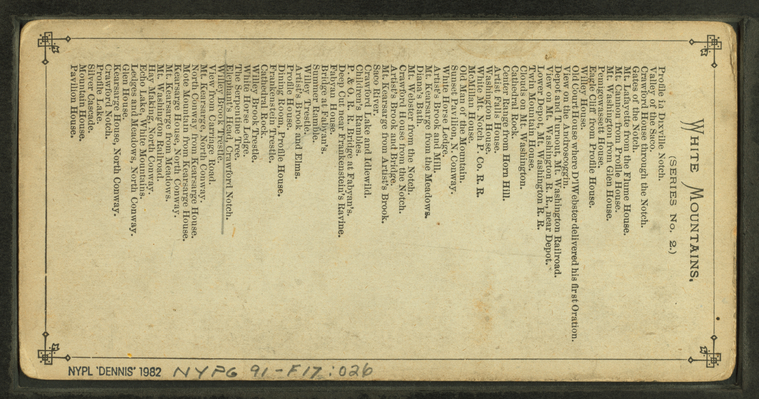 WHITE MOUNTAINS,
(SERIES No. 2.)
Profile in Dixville Notch.
Valley of the Saco.
Crawford House through the Notch.
Gates of the Notch.
Mt. Lafayette from the Flume House.
Mt. Cannon from Profile House.
Mt. Washington from Glen House.
Pemigewassett House.
Eagle Cliff and Profile House.
Willey House.
Old Court House where D. Webster delivered his first Oration.
View on the Androscoggin.
Depot and Turnout, Mt. Washington Railroad.
View on Mt. Washington R. R., near Depot.
Lower Depot, Mt. Washington R. R.
Twin Mountain House.
Clouds on Mt. Washington.
Cathedral Rock.
Centre Range from Horn Hill.
Artist Falls House.
Washington House.
White Mt. Notch P. Co. R. R.
McMillan House.
Old Man of the Mountain.
Sunset Pavilion, N. Conway.
White Horse Ledge.
Artist's Brook and Mill.
Mt. Kearsarge from the Meadows.
Diana's Bath.
Mt. Webster from the Notch.
Crawford House from the Notch.
Artist's Brook and Bridge.
Mt. Kearsarge from Artist's Brook.
Saco River.
Crawford Lake and Idlewild.
Children's Rambles.
P. & O. R. R. Bridge at Fabyan's.
Deep Cut near Frankenstein's Ravine.
Fabyan House.
Bridge at Fabyan's.
Summer Ramble.
Willey Trestle.
Artist's Brook and Elms.
Profile House.
Dining Room, Profile House.
Frankenstein Trestle.
Cathedral Rock.
Willey Brook Trestle.
White Horse Ledge.
The Serpentine Tree.
Elephant's Head, Crawford Notch.
Willey Brook Trestle.
View on Carriage Road.
Mt. Kearsarge, North Conway.
North Conway, from Kearsarge House.
Mote Mountain from Kearsarge House.
Kearsarge House, North Conway.
Mt. Kearsarge from Meadows.
Mt. Washington Railroad.
Hay Making, North Conway.
Echo Lake, White Mountains.
Ledges and Meadows, North Conway.
Glen House.
Kearsarge House, North Conway.
Crawford Notch.
Profile Lake.
Silver Cascade.
Mountain House.
Pavilion House.
NYPL 'DENNIS' 1982 NYPG 91-F17:026